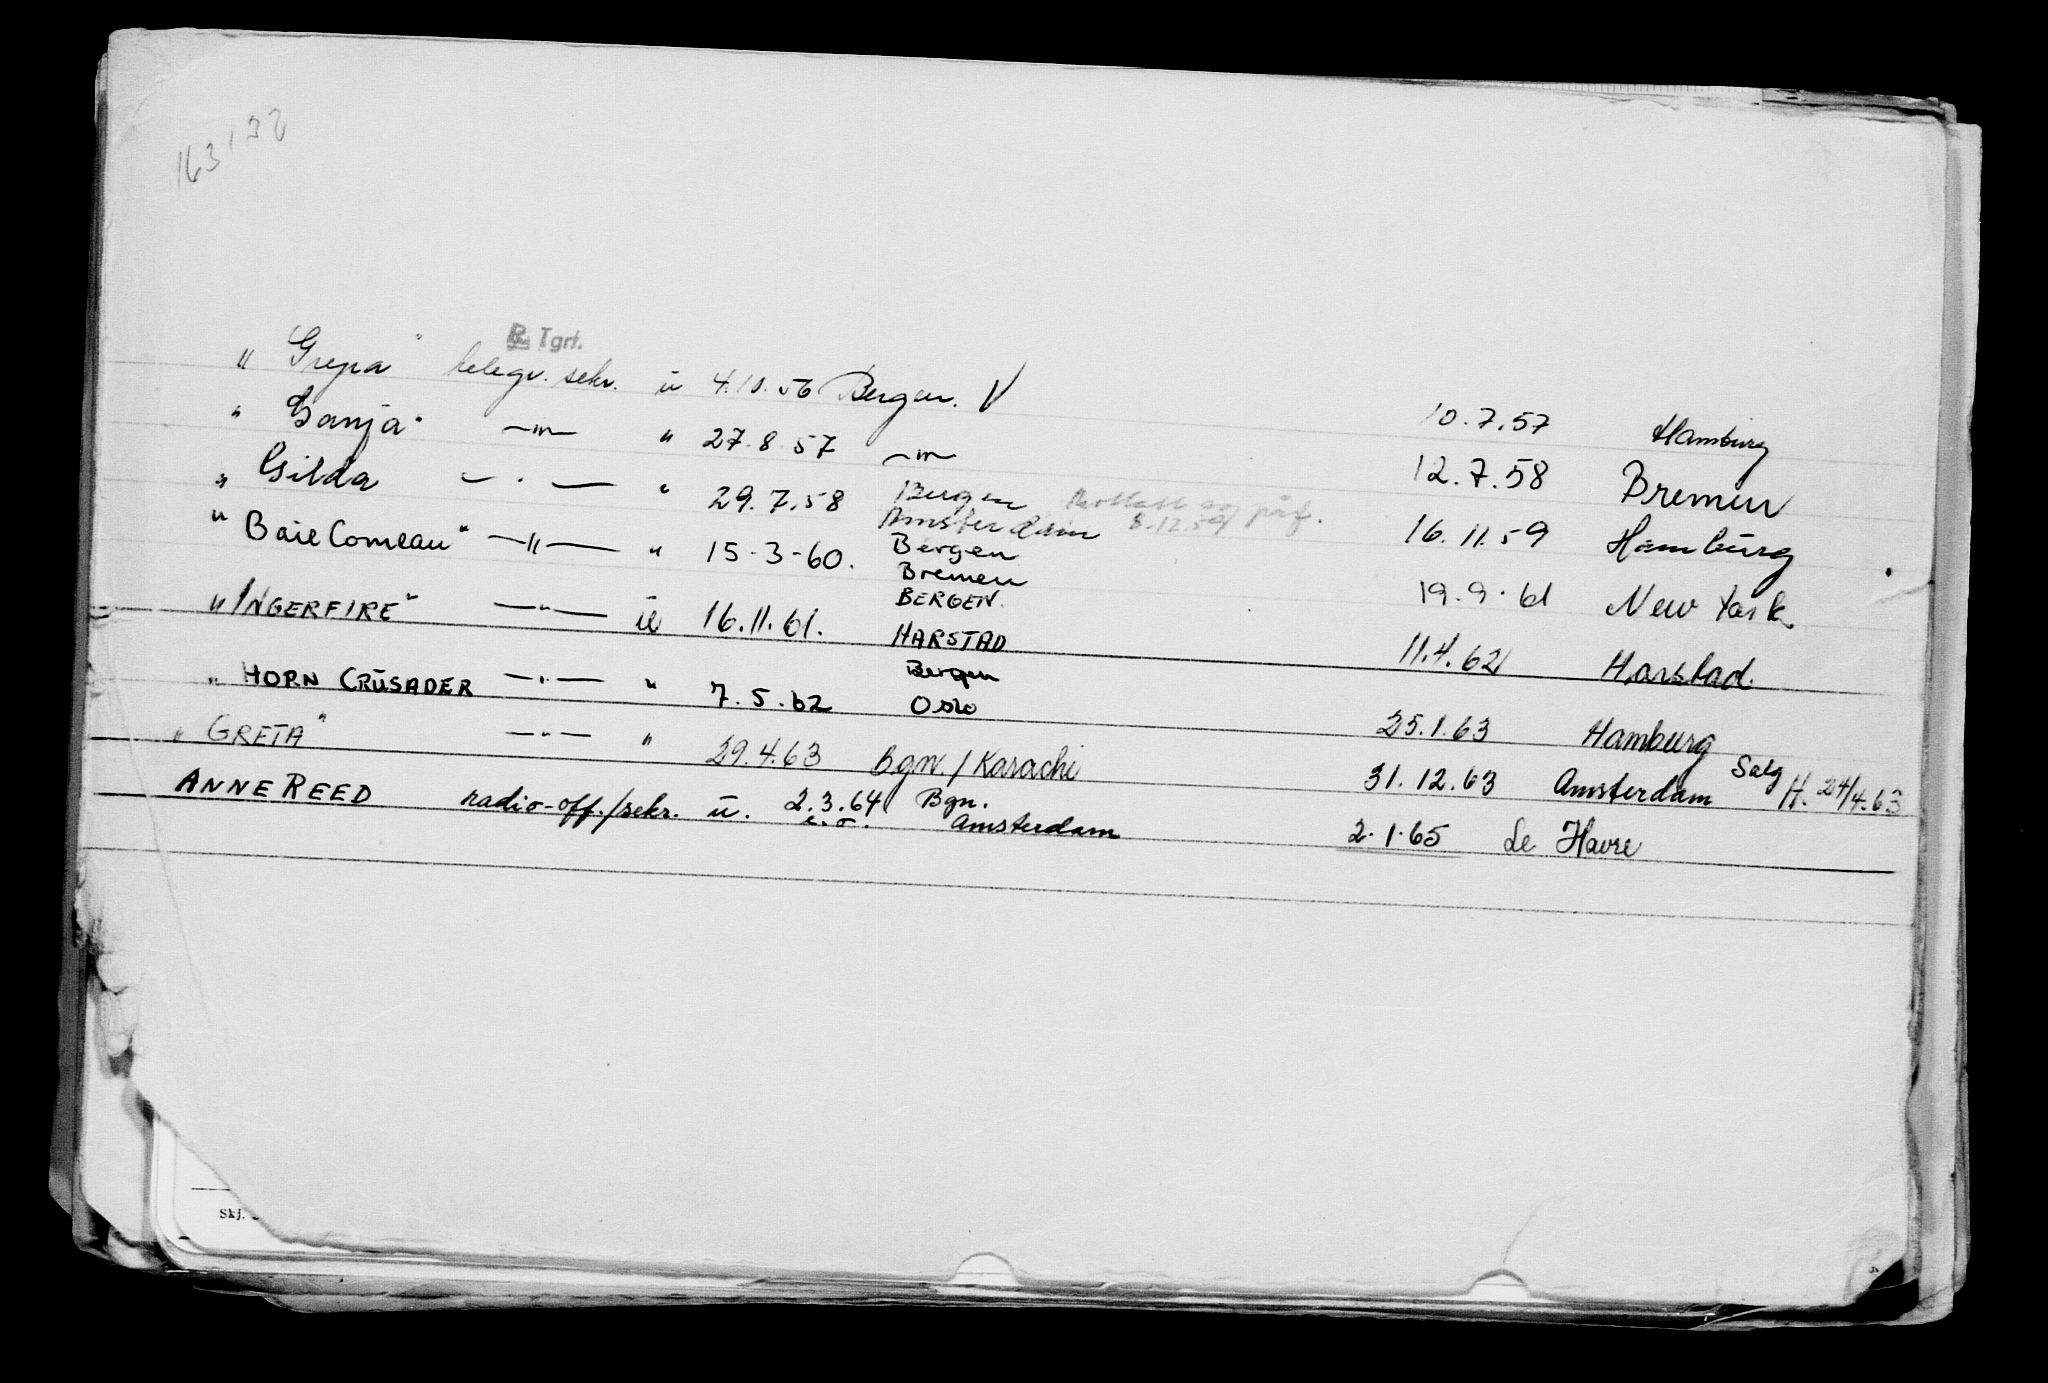 163132
Tgrf.
" Grepa " telegr. sekr. u 4.10.56 Bergen. V 10.7.57 Hamburg
" Ganja " —"— " 27.8.57 —"— 12.7.58 Bremen
" Gilda — " — " 29.7.58 Bergen 16.11.59 Hamburg
Amsterdam 8.12.59
" Baie Comeau " —"— " 15-3-60. Bergen 19.9.61 New York
Bremen
" INGERFIRE " —"— u 16.11.61. BERGEN. 11.4.62 Harstad.
HARSTAD
" HORN CRUSADER —"— " 7.5.62 Bergen 25.1.63 Hamburg
Oslo
" GRETA " —"— " 29.4.63 Bgn. / Karachi 31.12.63 Amsterdam Salg H. 24/4.63
ANNE REED radio-off./sekr. u. 2.3.64 Bgn. 2.1.65 Le Havre
e.o. Amsterdam
Skj.